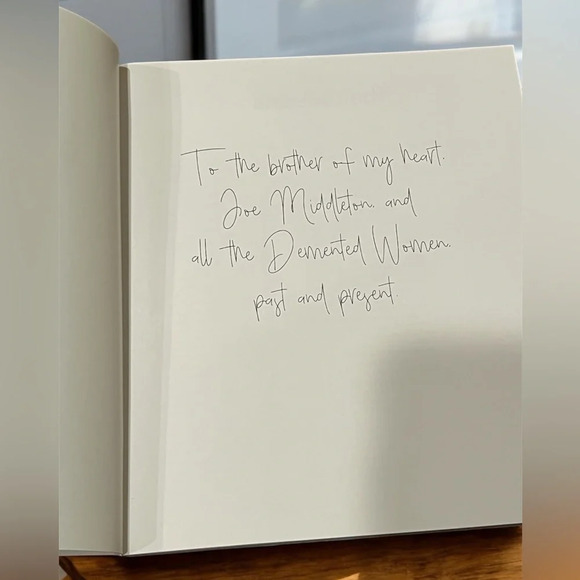 To the brother of my heart.
Joe Middleton. and
all the Demented Women.
past and present.